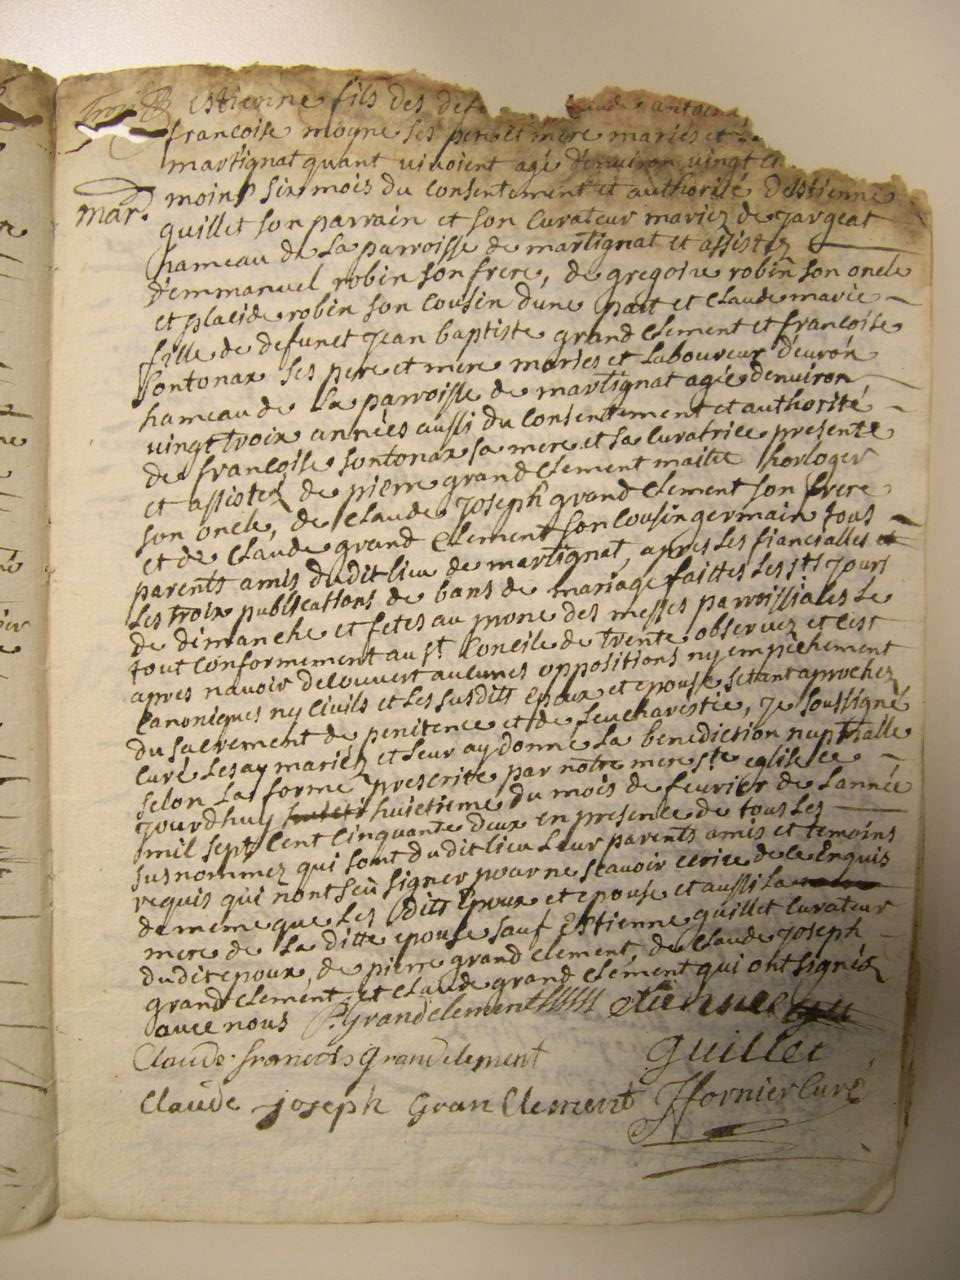 Estienne fils des def
francoise mogne ses pere et mere mariés et
martignat quant vivoient agé d'environ vingt
mar. moins six mois du consentement et authorité d'Estienne
quillet son parrain et son curateur mariez de jargeat
hameau de la parroisse de martignat et assistez
d'emmanuel robin son frere, de gregoire robin son oncle
et placide robin son cousin dune part et claude marie
fille de defunct jean baptiste grand clement et francoise
sontonax ses pere et mere mariés et laboureur d'evron
hameau de la parroisse de martignat agée denviron
vingt troix années aussi du consentement et authorité
de francoise sontonax sa mere et sa curatrice presente
et assistez de pierre grand clement maitre horloger
son oncle, de claude joseph grand clement son frere
et de claude grand clement son cousin germain tous
parents amis dudit lieu de martignat, apres les fiancialles et
les troix publications de bans de mariage faittes les jours
de dimanche et fetes au prone des messes parroissiales le
tout conformement au st. concile de trente observez et cest
apres navoir decouvert aucunes oppositions ny empechement
canoniques ny civils et les susdits epoux et epouse setant aprochez
du sacrement de penitence et de leucharistie, je soussigné
curé les ay mariéz et leur ay donné la benediction nuptialle
selon la forme prescritte par notre mere ste eglise ce
jourdhuy huietieme du mois de fevrier de lannée
mil sept cent cinquante deux en presence de tous les
susnommez qui sont dudit lieu leur parents amis et temoins
requis qui nont seu signer pour ne scavoir ecrire de ce enquis
de meme que les dits epoux et epouse et aussi la
mere de la ditte epouse sauf Estienne quillet curateur
dudit epoux, de pierre grand clement, de claude joseph
grand clement, et claude grand clement qui ont signéz
avec nous P. Grandclement etienne
Claude francois Grandclement Guillet
Claude joseph Gran Clement fornier Curé